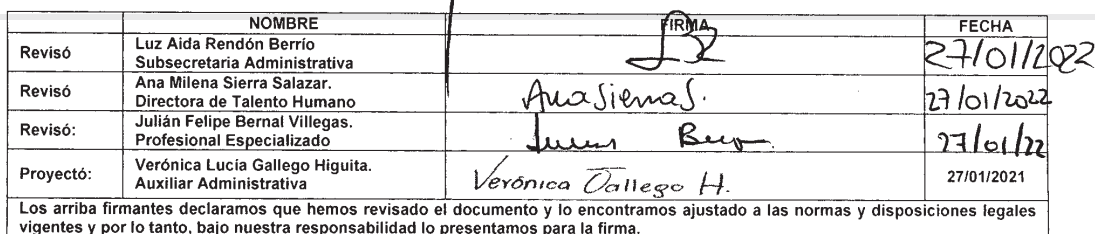 NOMBRE FIRMA FECHA
Revisó Luz Aida Rendón Berrío
Subsecretaria Administrativa 27/01/2022
Revisó Ana Milena Sierra Salazar.
Directora de Talento Humano Ana Sierra S. 27/01/2022
Revisó: Julián Felipe Bernal Villegas.
Profesional Especializado 27/01/22
Proyectó: Verónica Lucía Gallego Higuita.
Auxiliar Administrativa Verónica Gallego H. 27/01/2021
Los arriba firmantes declaramos que hemos revisado el documento y lo encontramos ajustado a las normas y disposiciones legales
vigentes y por lo tanto, bajo nuestra responsabilidad lo presentamos para la firma.